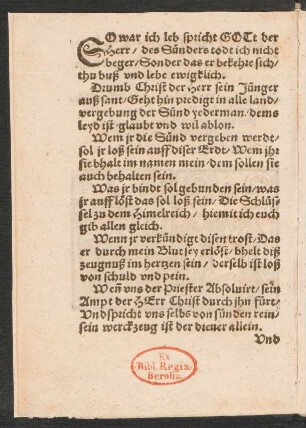 SO war ich leb spricht GOTt der
Herr / des Sünders todt ich nicht
beger / Sonder das er bekehre sich /
thu buß vnd lebe ewigklich.
Drumb Christ der Herr sein Jünger
auß sant / Geht hin predigt in alle land /
vergebung der Sünd yederman / dems
leyd ist / glaubt vnd wil ablon.
Wem jr die Sünd vergeben werdt /
sol jr loß sein auff diser Erdt / Wem jhr
sie bhalt im namen mein / dem sollen sie
auch behalten sein.
Was jr bindt sol gebunden sein / was
jr aufflöst das sol loß sein / Die Schlüs-
sel zu dem Himelreich / hiemit ich euch
gib allen gleich.
Wenn jr verkündigt disen trost / Das
er durch mein Blut sey erlöst / bhelt diß
zeugnuß in hertzen sein / derselb ist loß
von schuld vnd pein.
Weñ vns der Priester Absoluirt / sein
Ampt der HErr Christ durch jhn fürt /
Vnd spricht vns selbs von sünden rein /
sein werckzeug ist der diener allein.
Vnd
Ex
Bibl. Regia
Berolin.